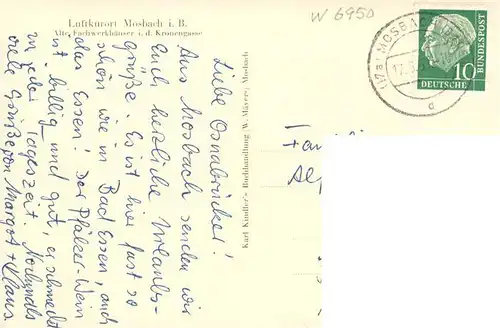 Luftkurort Mosbach i. B.
Alte Fachwerkhäuser i. d. Kronengasse
W 6950
(17a) MOSBACH
17.
a
10
DEUTSCHE
BUNDESPOST
Liebe Osnabrücker!
Aus Mosbach senden wir
Euch herzliche Urlaubs-
grüße. Es ist hier fast so
schön wie in Bad Essen, auch
das Essen! Der Pfälzer-Wein
ist billig und gut, er schmeckt
zu jeder Tageszeit.
viele Grüße von Margot + Klaus.
Karl Kindler's Buchhandlung W. Mayer, Mosbach
Fam